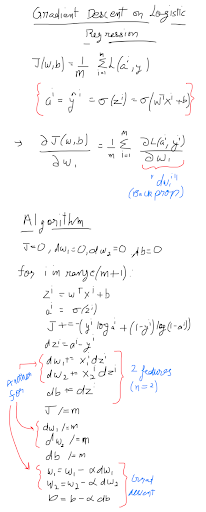 Gradient Descent on Logistic
Regression
J(w,b) = 1/m Σ_{i=1}^{m} L(aⁱ, y)
{ aⁱ = ŷⁱ = σ(zⁱ) = σ(wᵀxⁱ+b) }
→ ∂J(w,b)/∂w₁ = 1/m Σ_{i=1}^{m} ∂L(aⁱ, yⁱ)/∂w₁
"dw₁ⁱ"
(backprop)
Algorithm
J=0, dw₁=0, dw₂=0, db=0
for i in range(m+1):
zⁱ = wᵀxⁱ+b
aⁱ = σ(zⁱ)
J += -(yⁱ log aⁱ + (1-yⁱ) log(1-aⁱ))
dzⁱ = aⁱ-yⁱ
dw₁ += x₁ⁱ dzⁱ
dw₂ += x₂ⁱ dzⁱ
db += dzⁱ
2 features
(n=2)
another
for
J /= m
dw₁ /= m
dw₂ /= m
db /= m
w₁ = w₁ - α dw₁
w₂ = w₂ - α dw₂
b = b - α db
descent